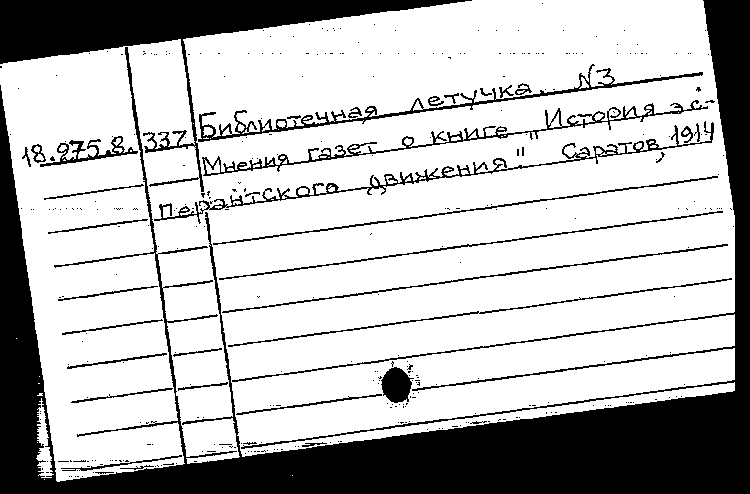 18.975.8. 337 Библиотечная летучка. N3
Мнения газет о книге „История эс-
перантского движения". Саратов, 1914